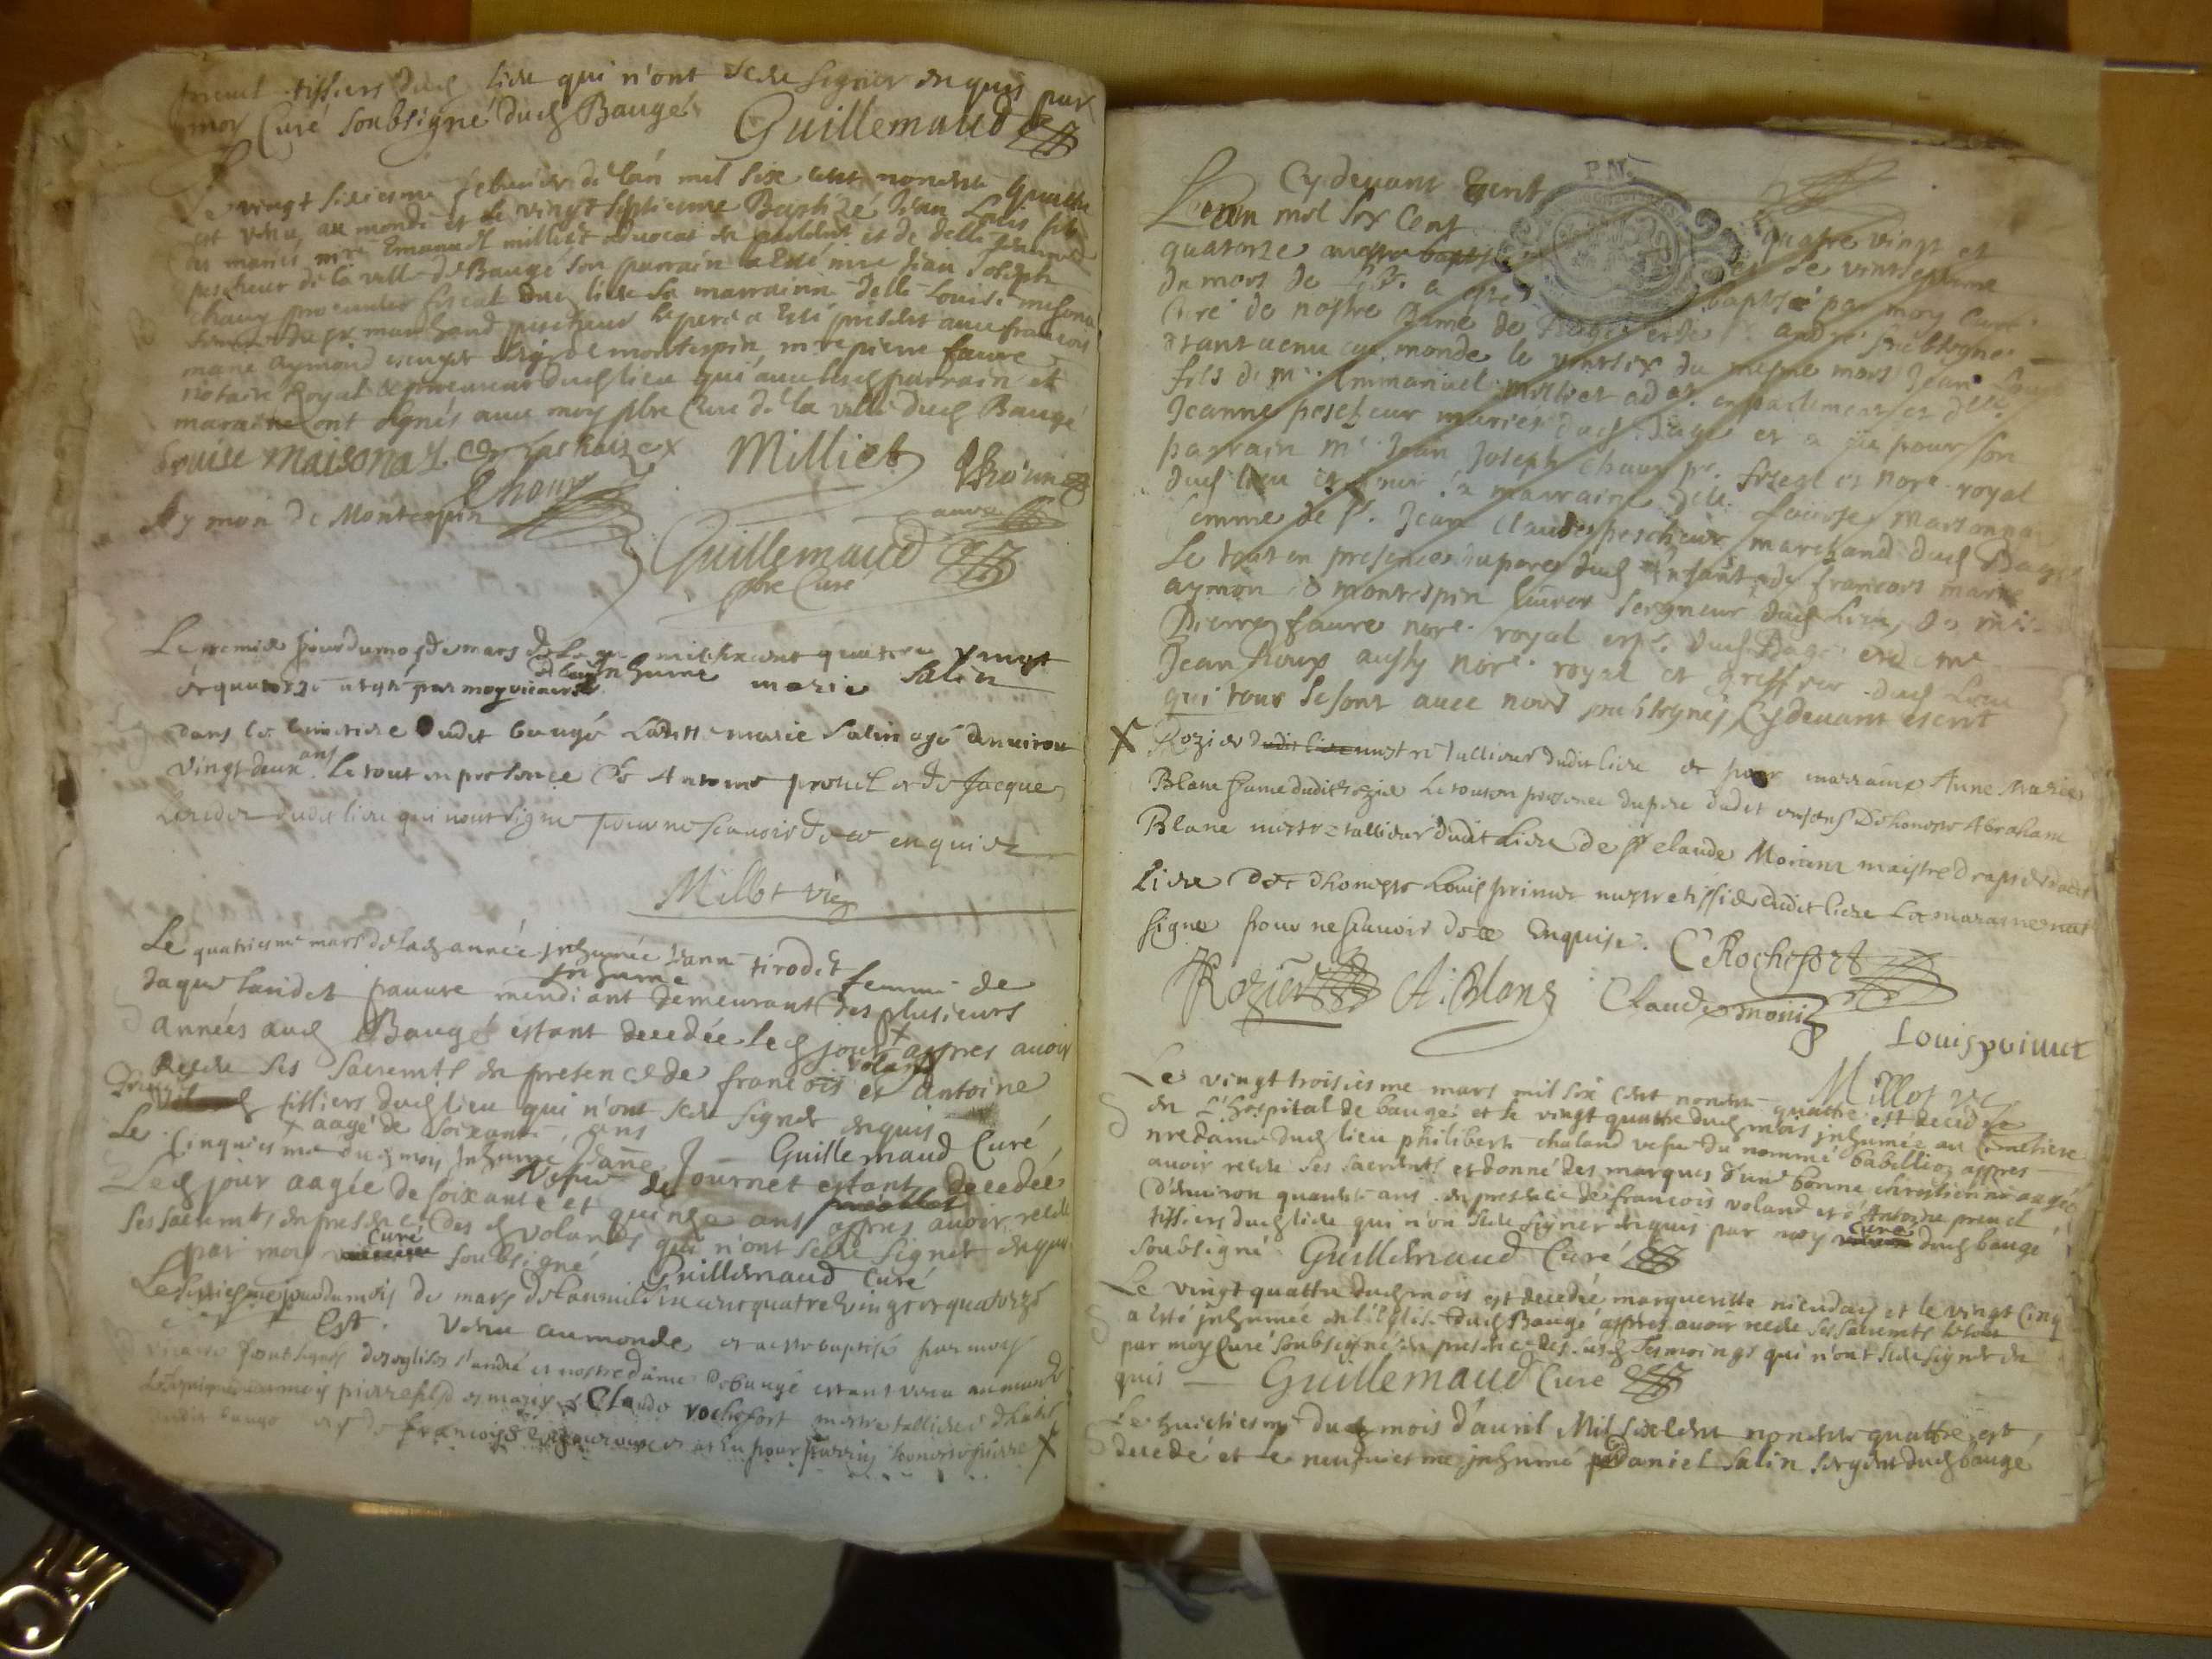 tissiers dud lieu qui n'ont sceu signer enquis par
moy Curé soubsigné dud Baugé
Guillemaud
Le vingt sixiesme febvrier de l'an mil six cent nonente quattre
est venu au monde et le vingt septiesme Baptizé Jean Louis fils
des mariés mre Emanuel milliet advocat en parlement et de delle Jeanne
pescheur de la ville de Baugé son parrain a esté mre Jean Joseph
chaux procureur fiscal dud lieu sa marraine delle Louise
marchand pescheur le pere a esté présent avec francois
marie aymond escuyer montespin mre pierre faure
notaire Royal procureur dud lieu qui avec lesd parrain et
maraine ont signés avec moy pbre Curé de la ville dud Baugé
Louise maisona
Milliet
Chaux
Aymon de Montespin
faure
Guillemaud
pbre Curé
Le premier jour du mois de mars mil six cent quatre vingt
et quatorze a esté par moy vicaire inhumé marie Salin
dans le cimetiere dudit baugé Laditte marie Salin agé d'environ
vingt deux ans Le tout en presence de Antoine preuel et de Jacque
dudit lieu qui n'ont signé pour ne scavoir de ce enquist
Millot vic
Le quatriesme mars de lad année inhumée Jeanne tirodet femme de
Jaque pauvre mendiant demeurant des plusieurs
inhumé
années aud Baugé estant decedée led jour x appres avoir
Receu ses sacremts en presence de francois voland et Antoine
preuel tissiers dud lieu qui n'ont sceu signer enquis
x aagé de soixante ans Guillemaud Curé
Le Cinquiesme dud mois inhumé Jeanne Journet estant decedée
vefve de
Led jour aagée de soixante et quinze ans appres avoir receu
ses sacremts en presence des d volands qui n'ont sceu signer enquis
par moy vicaire Curé soubsigné
Guillemaud Curé
Le jour du mois de mars de l'an mil six cent quatre vingt et quatorze
est venu au monde et a esté baptisé par moy
vicaire soubsigné des eglises st andré et nostre dame de baugé estant venu au monde
pierre fils des mariez Claude rochefort maistre tallieur d'habit
dudit baugé et de francoise et a eu pour parrain honeste pierre X
Cy devant Escrit
L'an mil six Cent quatre vingt et
quatorze et le vintseptieme
du mois de a esté baptisé par moy curé
Curé de nostre dame de Bagé et de st andré soubsigné
estant venu au monde le vintsix du mesme mois Jean Louis
fils de mr Emmanuel milliet adat en parlement et delle
Jeanne pescheur mariés dud Bagé et a eu pour son
parrain mr Jean Joseph chaux pr fiscal et nore royal
dud lieu et pour sa marraine delle Louise Maisonna
femme de sr Jean Claude pescheur marchand dud Bagé
Le tout en presence du pere dud Enfant de francois marie
aymon de montespin seigneur dud Lieu, de mr
Pierre faure nore royal et pr dud Bagé et de mr
Jean Roux aussy nore royal et greffier dud Lieu
qui tous se sont avec nous soubsignés Cy devant escrit
X Rozier dudit lieu maistre tallieur dudit lieu et pour marraine Anne Marie
Blanc fame dudit Rozier Le tout en presence du pere dudit enfans De honeste Abraham
Blanc maistre tallieur dudit Lieu De sr claude Morinne maistre drapier dudit
Lieu Et d'honeste Louis prinner maistre tissier dudit lieu La maraine n'at
signé pour ne scavoir de ce Enquise. C Rochefort
Rozier A. Blanc Claude monin
Louis
Millot vic
Le vingt troisiesme mars mil six cent nonente quattre est decedée
en L'hospital de baugé et le vingt quattre dud mois inhumée au Cimetiere
nre dame dud lieu philiberte chaland vefve du nommé babillion appres
avoir receu ses sacremts et donné des marques d'une bonne chrestienne aagée
d'environ quarante ans en presence de francois voland et Antoine preuel
tissiers dud lieu qui n'on sceu signer enquis par moy Curé dud baugé
soubsigné Guillemaud Curé
Le vingt quattre dud mois est decedée margueritte et le vingt Cinq
a esté inhumée en l'église dud Baugé appres avoir receu ses sacremts le tout
par moy Curé soubsigné en presence des susd tesmoings qui n'ont sceu signer en
quis Guillemaud Curé
Le huictiesme dud mois d'avril Mil six cent nonente quattre est
decedé et le neufviesme inhumé Daniel Salin sergent dud baugé